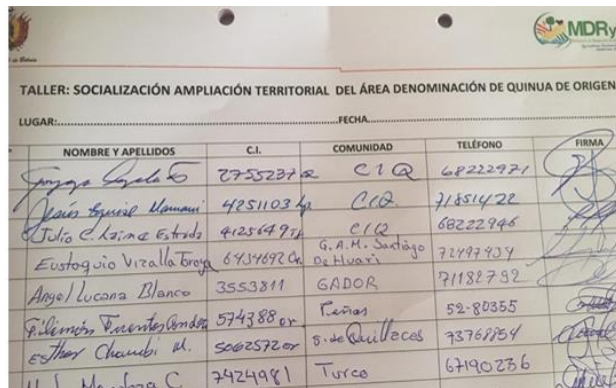 MDRy
TALLER: SOCIALIZACIÓN AMPLIACIÓN TERRITORIAL DEL ÁREA DENOMINACIÓN DE QUINUA DE ORIGEN
LUGAR:..........FECHA..........
NOMBRE Y APELLIDOS C.I. COMUNIDAD TELÉFONO FIRMA
2755237 CIQ 68222971
Jesús Esquivel Mamani 4251103 Lp CIQ 71851422
Julio C. Laime Estrada 4125649 Tj CIQ 68222946
Eustoquio Vizalla Toroya 6434692 Cb G.A.M. Santiago De Huari 72497434
Angel Lucana Blanco 3553811 GADOR 71182792
Filimón Fuentes 574388 or Peñas 52-80355
Esther Chambi M. 5062572 or S. de Quillacas 73768854
Mendoza C. 7424981 Turco 67190236